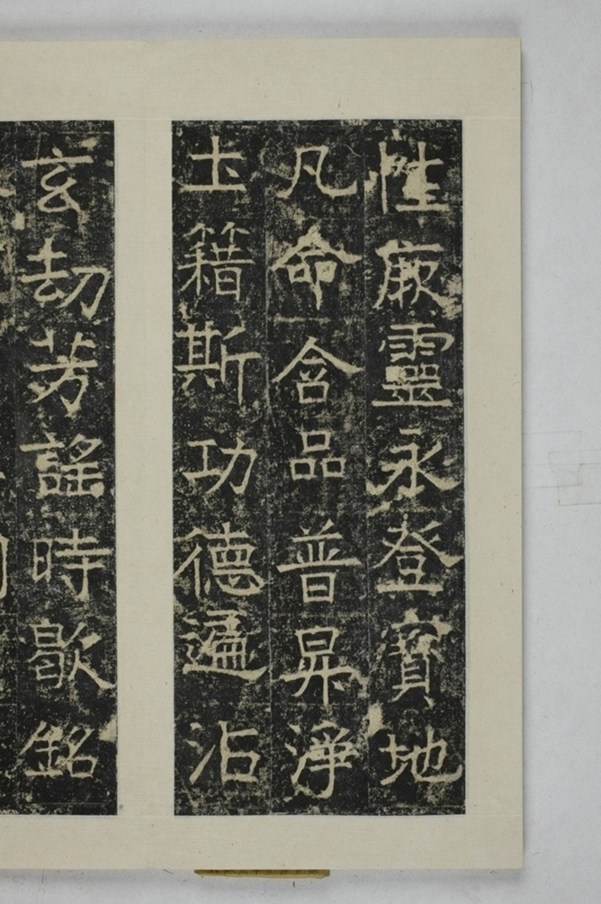 性厥靈永登寶地
凡命含品普昇淨
土籍斯功德遍沾
玄劫芳謠時歇銘